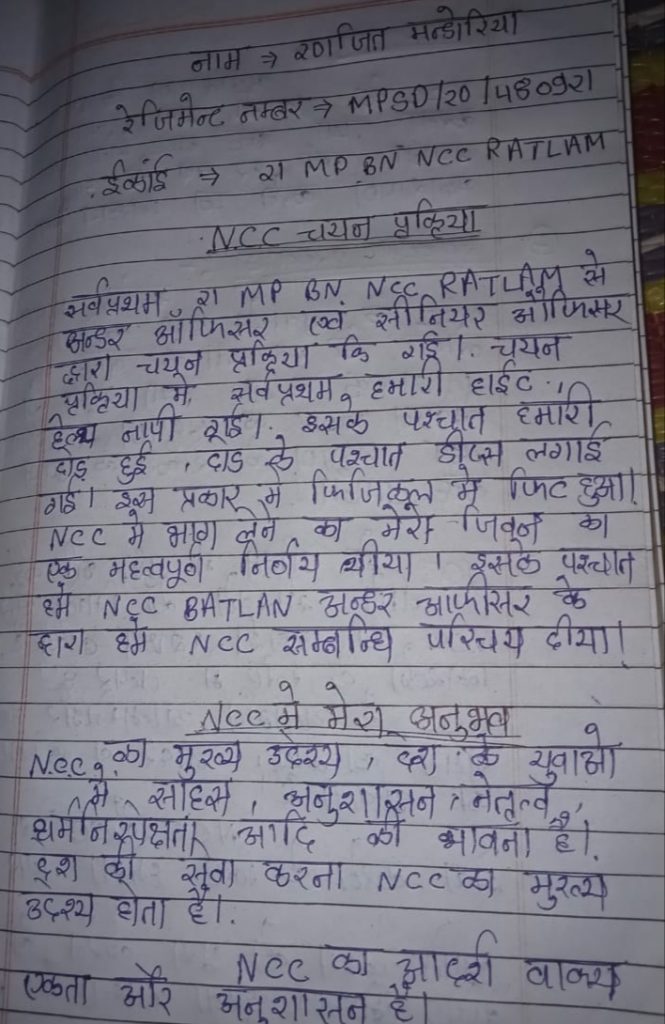 नाम → रणजित मन्डोरिया
रेजिमेन्ट नम्बर → MPSD/20/480921
ईकाई → 21 MP BN NCC RATLAM
NCC चयन प्रक्रिया
सर्वप्रथम 21 MP BN NCC RATLAM से
अन्डर ऑफिसर एवं सीनियर ऑफिसर
द्वारा चयन प्रक्रिया कि गई। चयन
प्रक्रिया में सर्वप्रथम हमारी हाईट,
हेल्थ नापी गई। इसके पश्चात हमारी
दोड़ हुई, दोड के पश्चात डीप्स लगाई
गई। इस प्रकार मे फिजिकल मे फिट हुआ।
NCC मे भाग लेने का मेरा जिवन का
एक महत्वपूर्ण निर्णय थीया। इसके पश्चात
हमें NCC BATLAN अन्डर आफीसर के
द्वारा हमें NCC सम्बन्धि परिचय दीया।
NCC मे मेरा अनुभव
N.C.C. का मुख्य उदेश्य, देश के युवाओ
मे साहस, अनुशासन, नेतृत्व,
धर्मनिरपेक्षता आदि की भावना है।
देश की सेवा करना NCC का मुख्य
उदेश्य होता है।
NCC का आदर्श वाक्य
एकता और अनुशासन है।